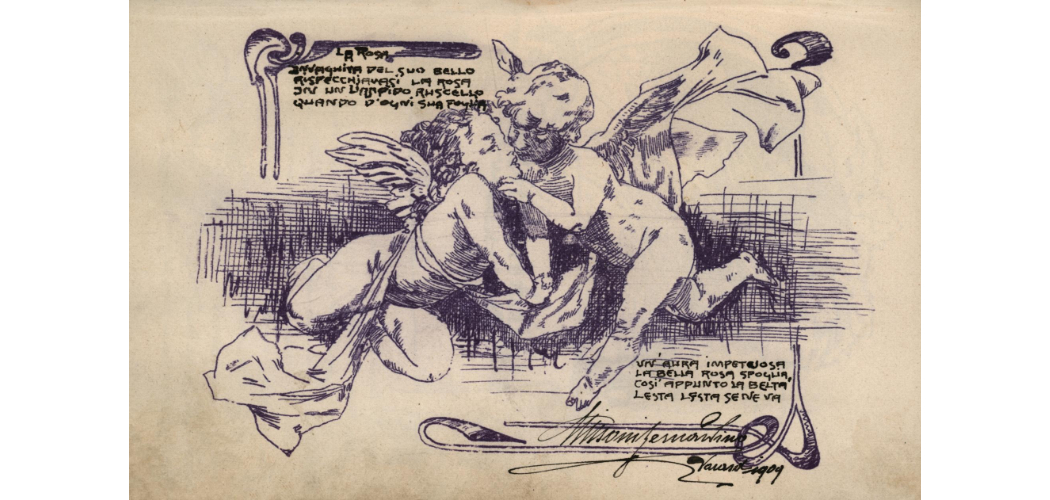 LA ROSA
INVAGHITA DEL SUO BELLO
RISPECCHIAVASI LA ROSA
IN UN LIMPIDO RUSCELLO
QUANDO D'OGNI SUA FOGLIA
UN'AURA IMPETUOSA
LA BELLA ROSA SPOGLIA,
COSI' APPUNTO LA BELTÀ
LESTA LESTA SENE VA
Bernardino
1909